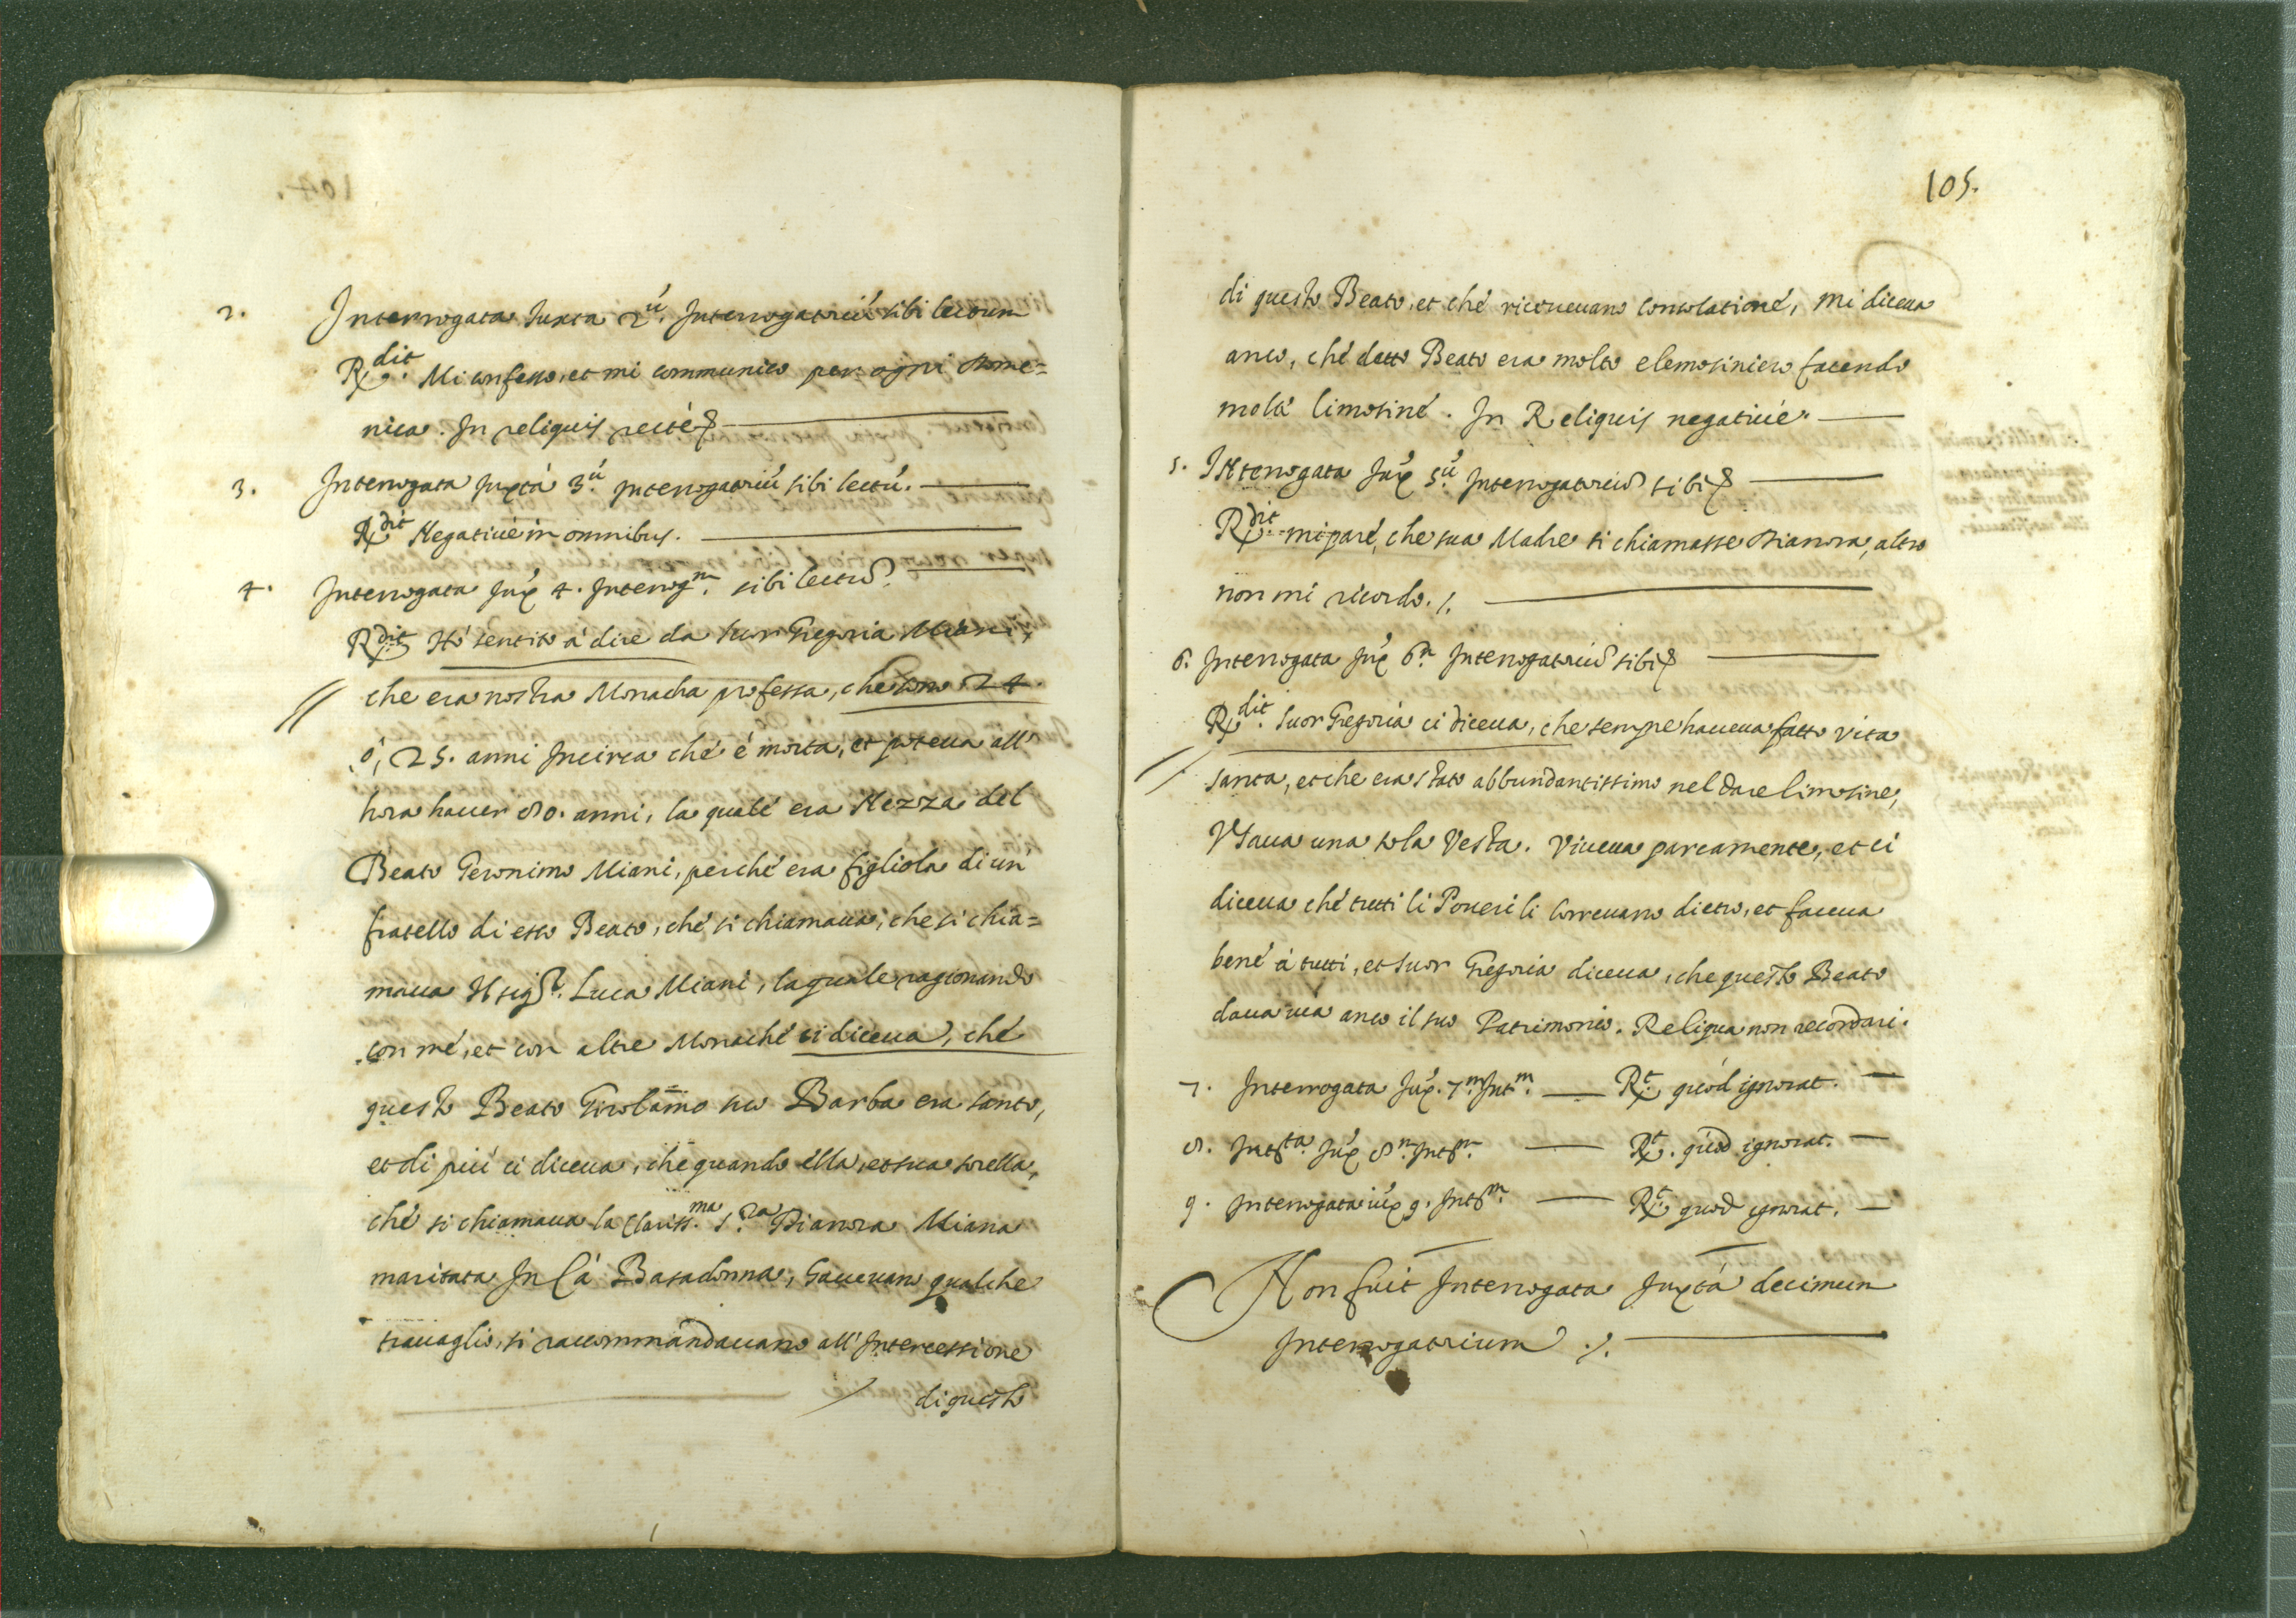 2. Interrogata Iuxta 2.ũ Interrogatoriũ sibi lectum
R.dit Mi confesso, et mi communico per ogni Dome=
nica. In reliquis rectè &
3. Interrogata Juxtà 3.ũ Interrogatoriũ sibi lectũ.
R.dit Negatiuè in omnibus.
4. Interrogata Jux.̃ 4. Interrog.m sibi lectũ.
R.dit Hò sentito à dire da Suor Gregoria Miani,
che era nostra Monacha professa, che sono 24.
ò, 25. anni Incirca chè è morta, et poteua all'
hora hauer 80. anni, la qualè era Nezza del
Beato Geronimo Miani, perchè era figliola di un'
fratello di esso Beato, chè si chiamaua, che si chia=
maua Il sig.r Luca Miani, la quale ragionando
con mè, et con altre Monachè ci diceua, chè
questo Beato Girolamo suo Barba era santo,
et di più ci diceua, che quando ella, et sua sorella,
chè si chiamaua la Clariss.ma S.ra Dianora Miana
maritata In Cà Basadonna, haueuano qualche
trauaglio, si raccommandauano all'Intercessione
di questo
105.
di questo Beato, et chè riceueuano consolationè, mi diceua
anco, chè detto Beato era molto elemosiniero facendo
moltè limosinè. In Reliquis negatiuè.
5. Interrogata Jux.̃ 5.ũ Interrogatoriũ sibi &
R.dit mi parè, che sua Madre si chiamasse Dianora, altro
non mi ricordo. /.
6. Interrogata Jux.̃ 6.m Interrogatoriũ sibi &
R.dit Suor Gregoria ci diceua, che sempre haueua fatto vita
santa, et che era stato abbundantissimo nel dare limosine,
Vsaua una sola Vesta. Viueua parcamente, et ci
diceua chè tutti li Poueri li correuano dietro, et faceua
benè à tutti, et Suor Gregoria diceua, che questo Beato
daua via anco il suo Patrimonio. Reliqua non recordari.
7. Interrogata Jux.̃ 7.m Int.m — R.t quòd ignorat. —
8. Int.ta Jux.̃ 8.m Int.m — R.t quòd ignorat. —
9. Interrogata iux.̃ 9. Int.m — R.t quod ignorat. —
Non fuit Interrogata Juxtà decimum
Interrogatorium /.